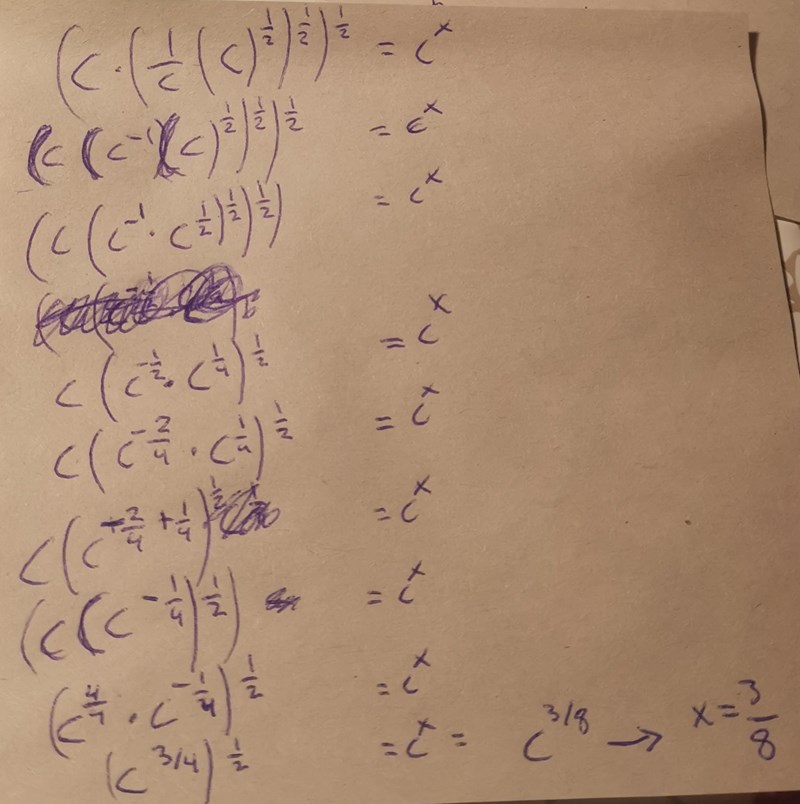 (c · (1/c (c)^1/2)^1/2)^1/2 = c^x
(c (c^-1 (c)^1/2)^1/2)^1/2 = c^x
(c (c^-1 · c^1/2)^1/2)^1/2) = c^x
c (c^-1/2 · c^1/4)^1/2 = c^x
c (c^-2/4 · c^1/4)^1/2 = c^x
c (c^-2/4 + 1/4)^1/2 = c^x
(c (c^-1/4)^1/2) = c^x
(c^4/4 · c^-1/4)^1/2 = c^x
(c^3/4)^1/2 = c^x = c^3/8 → x = 3/8